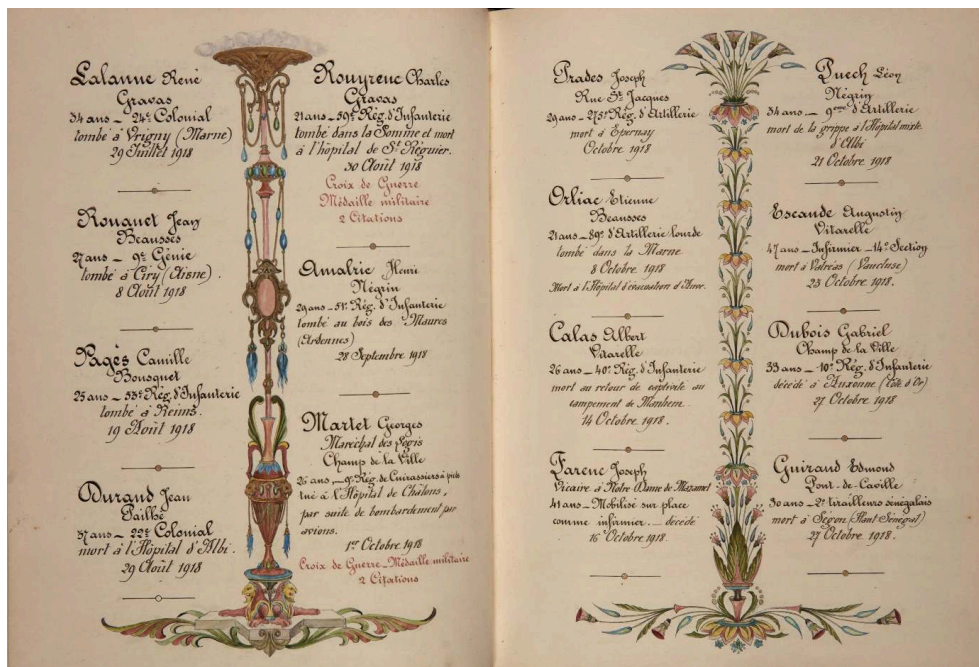 Lalanne René
Gravas
34 ans _ 24e Colonial
tombé à Vrigny (Marne)
29 Juillet 1918
Rouquet Jean
Beausses
27 ans _ 9e Génie
tombé à Ciry (Aisne)
8 Août 1918
Pagès Camille
Bousquet
25 ans _ 53e Rég. d'Infanterie
tombé à Reims.
19 Août 1918
Durand Jean
Pailhé
37 ans _ 22e Colonial
mort à l'Hôpital d'Albi.
29 Août 1918
Rouyrenc Charles
Gravas
21 ans _ 59e Rég. d'Infanterie
tombé dans la Somme et mort
à l'hôpital de St Réquier.
30 Août 1918
Croix de Guerre
Médaille militaire
2 Citations
Amalric Henri
Négrin
29 ans _ 51e Rég. d'Infanterie
tombé au bois des Maures
(Ardennes)
28 Septembre 1918
Martet Georges
Maréchal des logis
Champ de la Ville
26 ans _ 9e Rég. de Cuirassiers à pied
tué à l'Hôpital de Châlons,
par suite de bombardement par
avions.
1er Octobre 1918
Croix de Guerre _ Médaille militaire
2 Citations
Prades Joseph
Rue St Jacques
29 ans _ 273e Rég. d'Artillerie
mort à Epernay
Octobre 1918
Orliac Etienne
Beausses
21 ans _ 89e d'Artillerie lourde
tombé dans la Marne
8 Octobre 1918
Mort à l'Hôpital d'évacuation d'Auve.
Calas Albert
Vitarelle
26 ans _ 40e Rég. d'Infanterie
mort au retour de captivité au
campement de Manhem.
14 Octobre 1918.
Farenc Joseph
Vicaire à Notre Dame de Mazamet
41 ans _ Mobilisé sur place
comme infirmier _ décédé
16 Octobre 1918.
Puech Léon
Négrin
34 ans _ 9ème d'Artillerie
mort de la grippe à l'Hôpital mixte
d'Albi
21 Octobre 1918
Escande Augustin
Vitarelle
47 ans _ Infirmier _ 14e Section
mort à Valréas (Vaucluse)
23 Octobre 1918.
Dubois Gabriel
Champ de la Ville
33 ans _ 10e Rég. d'Infanterie
décédé à Auxonne (Côte d'Or)
27 Octobre 1918.
Guiraud Edmond
Pont-de-Caville
30 ans _ 2e tirailleurs sénégalais
mort à Ségou (Haut Sénégal)
27 Octobre 1918.